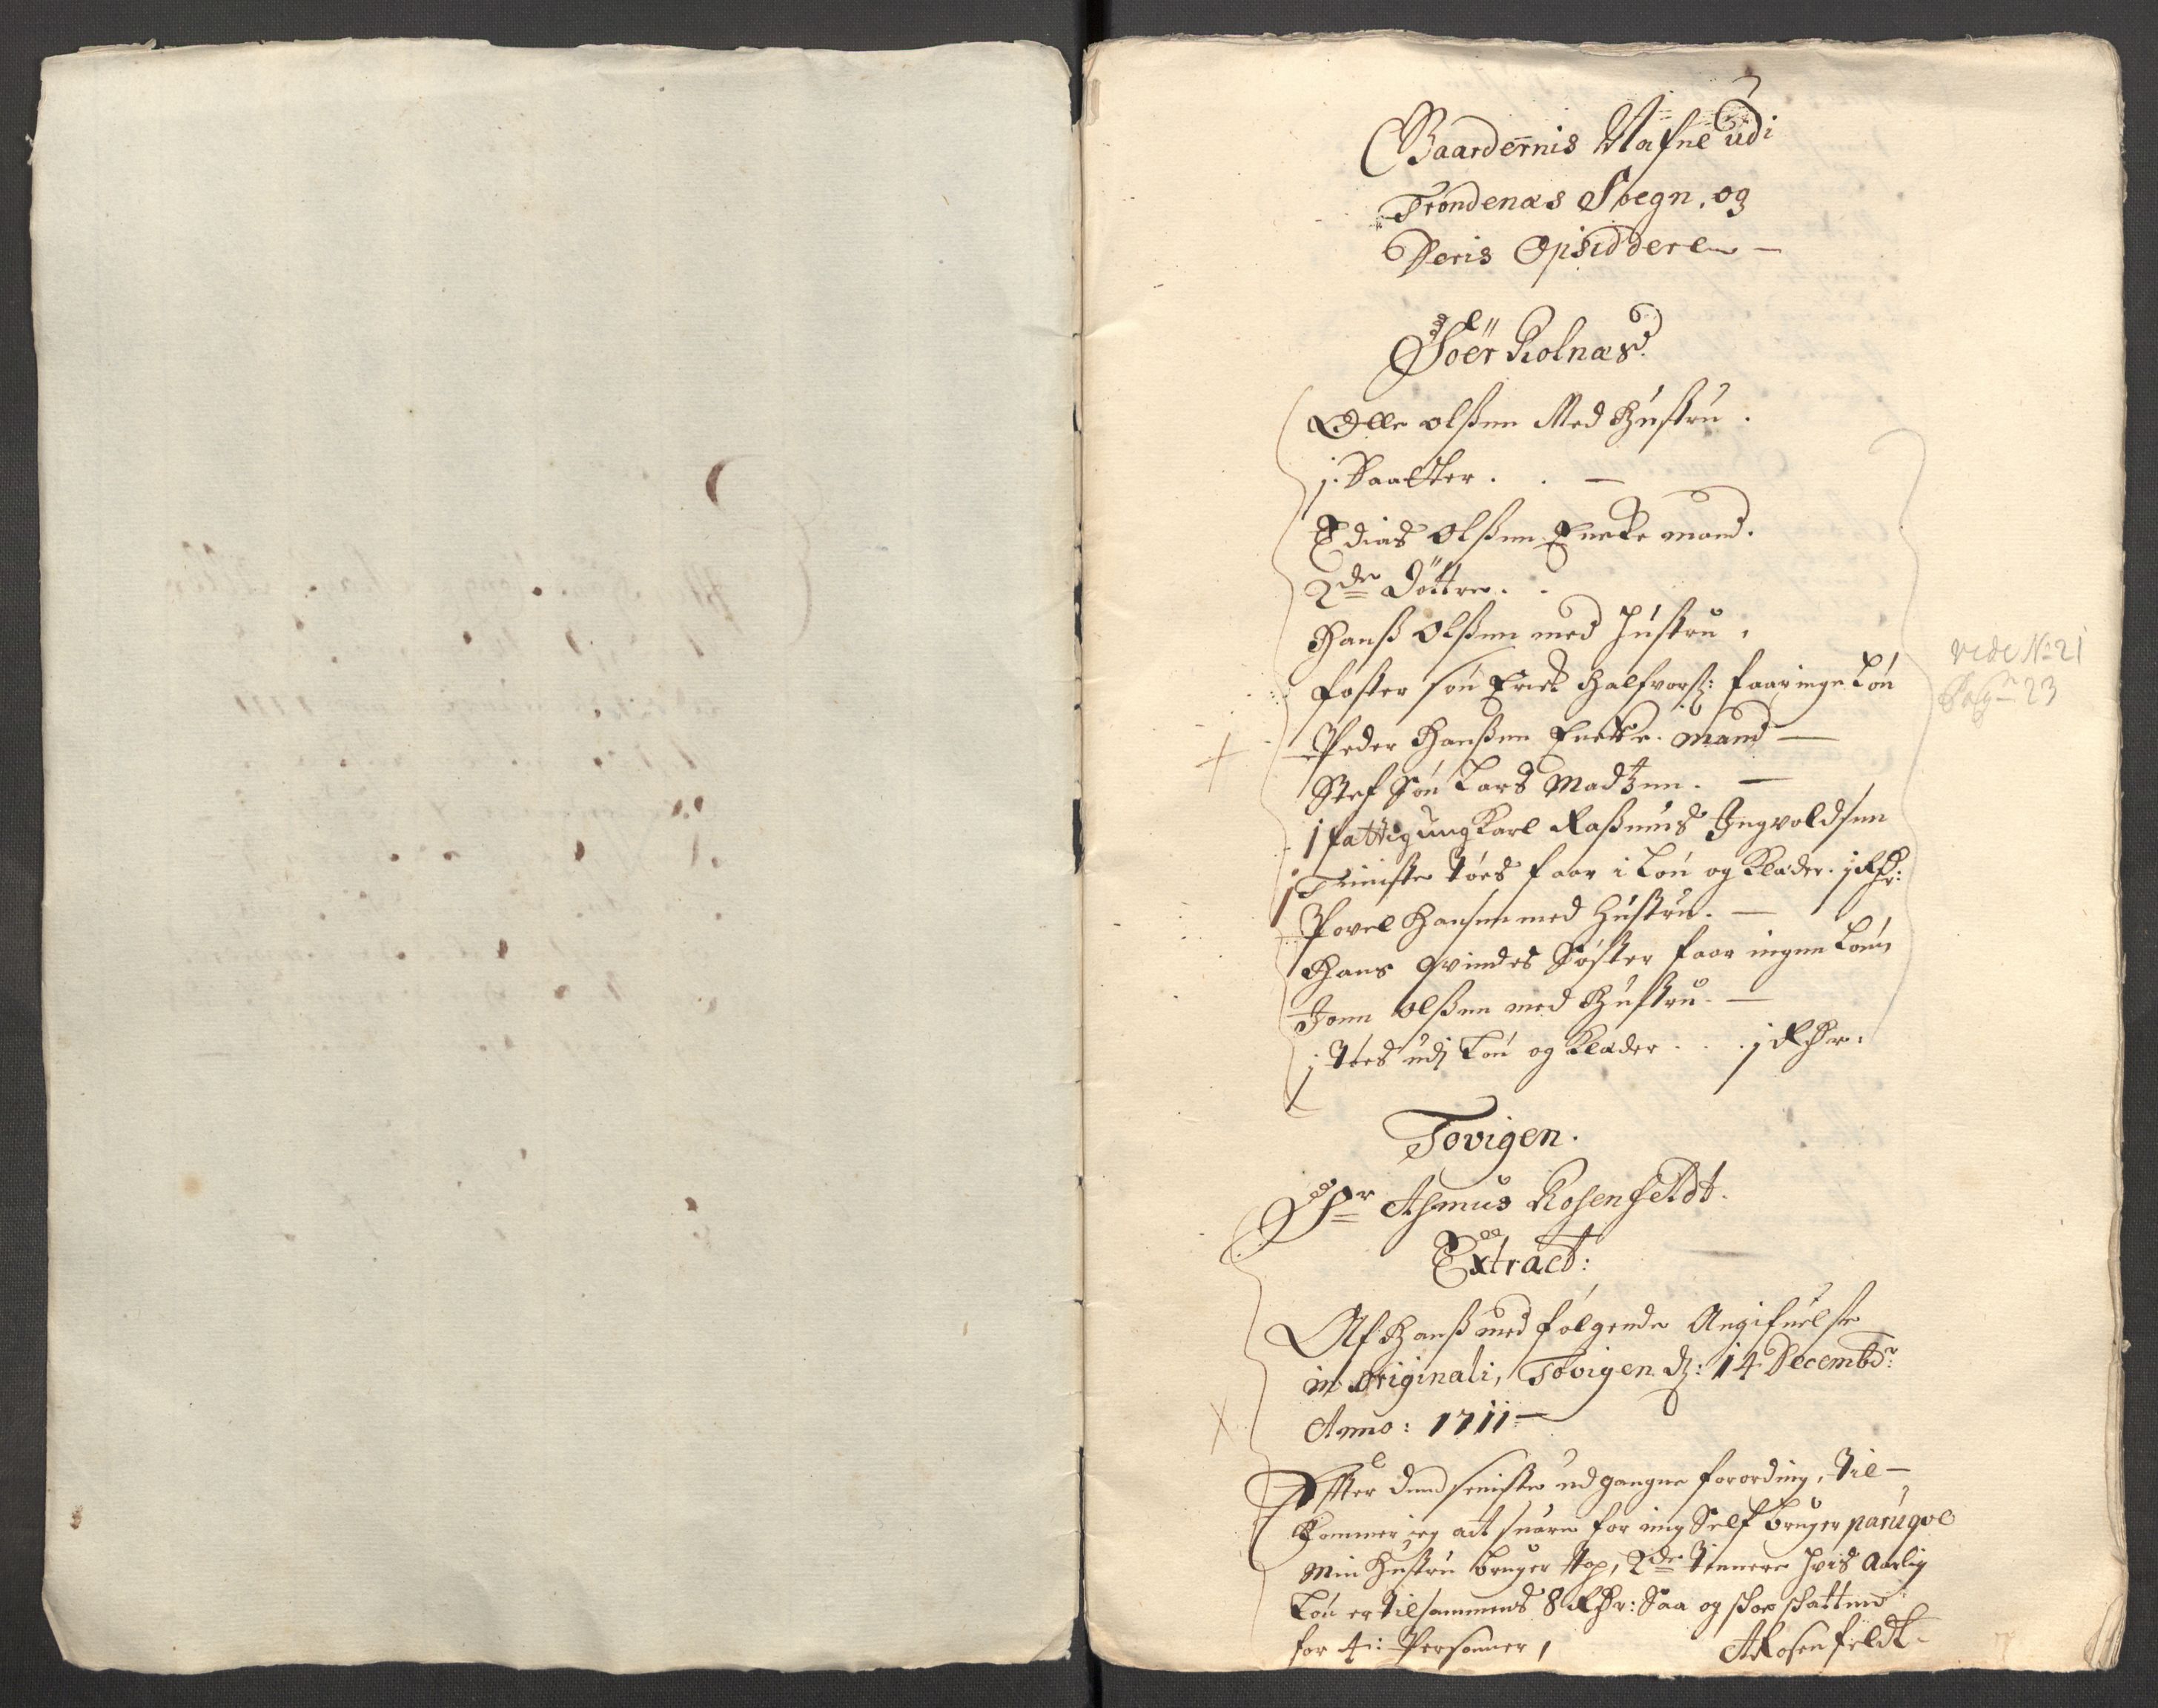 Gaardernis Nafne udi
Trondenæs Sogn, og
Deris Opsiddere
Söer Kolnæs.
Olle Olßen Med Hustru.
j. Daatter.
Olßen Encke mand.
2de Döttre.
Hanß Olßen med Hustru,
foster sön Erick Halfvorß: faar ingen Lön
Peder Hanßen Encke mand
Stef Sön Lars Madtzen.
1 fattig ung Karl Raßmus Ingvoldsen
1 Tieniste Töes faar i Lön og Klæder. j Rdr:
Povel Hansen med Hustru.
Hans qvindes Söster faar ingen Lönn
Jonn Olßen med Hustru.
j Töes udj Lön og Klæder . . . j Rdr.
vide No 21
Pag 23
Tovigen.
Hr Asmus Rosenfeldt.
Extract:
Af Hanß med fölgende Angifuelse
in Originali, Tovigen d: 14 Decembr:
Anno: 1711
Effter dend seniste udgangne forording, til-
kommer jeg at suare for mig Self bruger paruqve
Min Hustru bruger top, 2de tienere hvis Aarlig
Lön er tilsammens 8 Rdr: Saa og skoe skatten
for 4: Personer,
ARosenfeldt